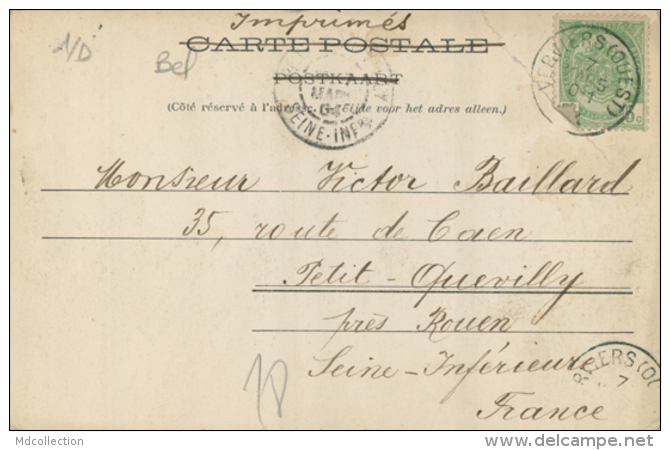 Imprimés
1/D
Bel
CARTE POSTALE
POSTKAART
(Côté réservé à l'adresse. voor het adres alleen.)
VERVIERS (OUEST)
7
MARS
04
MARS
04
SEINE-INFRE
Monsieur Victor Baillard
35, route de Caen
Petit-Quevilly
près Rouen
Seine-Inférieure
France
RVIERS (OU
7
Mdcollection
www.delcampe.net